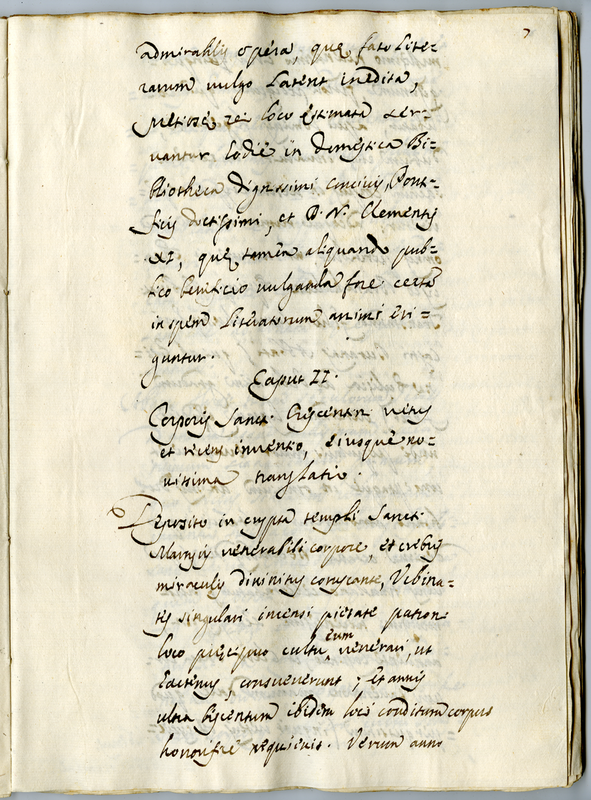 7
admirabilis opera, quę fato lite=
rarum vulgo latent inedita,
Metiosę rei loco ęstimata ser=
vantur hodie in domęstica Bi=
bliotheca dignissimi concivis, Ponti=
ficis doctissimi, et D. N. Clementis
XI, quę tamen aliquando pub=
lico benificio vulganda fore certe
in spem Literatorum animi eri=
guntur.
Caput II.
Corporis Sanct. Crescentin vetus
et recens inventio, eiusque no=
vissima translatio.
Deposito in crypta templi Sanct.
Martyris venerabili corpore, et crebris
miraculis divinitus coruscante, Urbina=
tes singulari incensi pietate patron
loco pręcipuo cultu eum venerari, ut
factemus, consueverunt; et annis
ultra biscentum ibidem loci conditum corpus
honorifice requievit. Verum anno